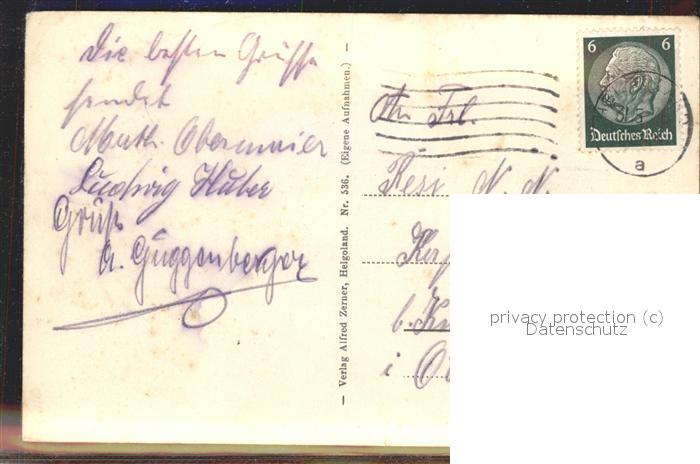 Die besten Grüsse
sendet
Math. Obermaier
Ludwig Huber
Grüß
A. Guggenberger
— Verlag Alfred Zerner, Helgoland. Nr. 536. (Eigene Aufnahmen.) —
6 6
Deutsches Reich
a
An Frl.
Resi N. N.
b.
i
privacy protection (c)
Datenschutz